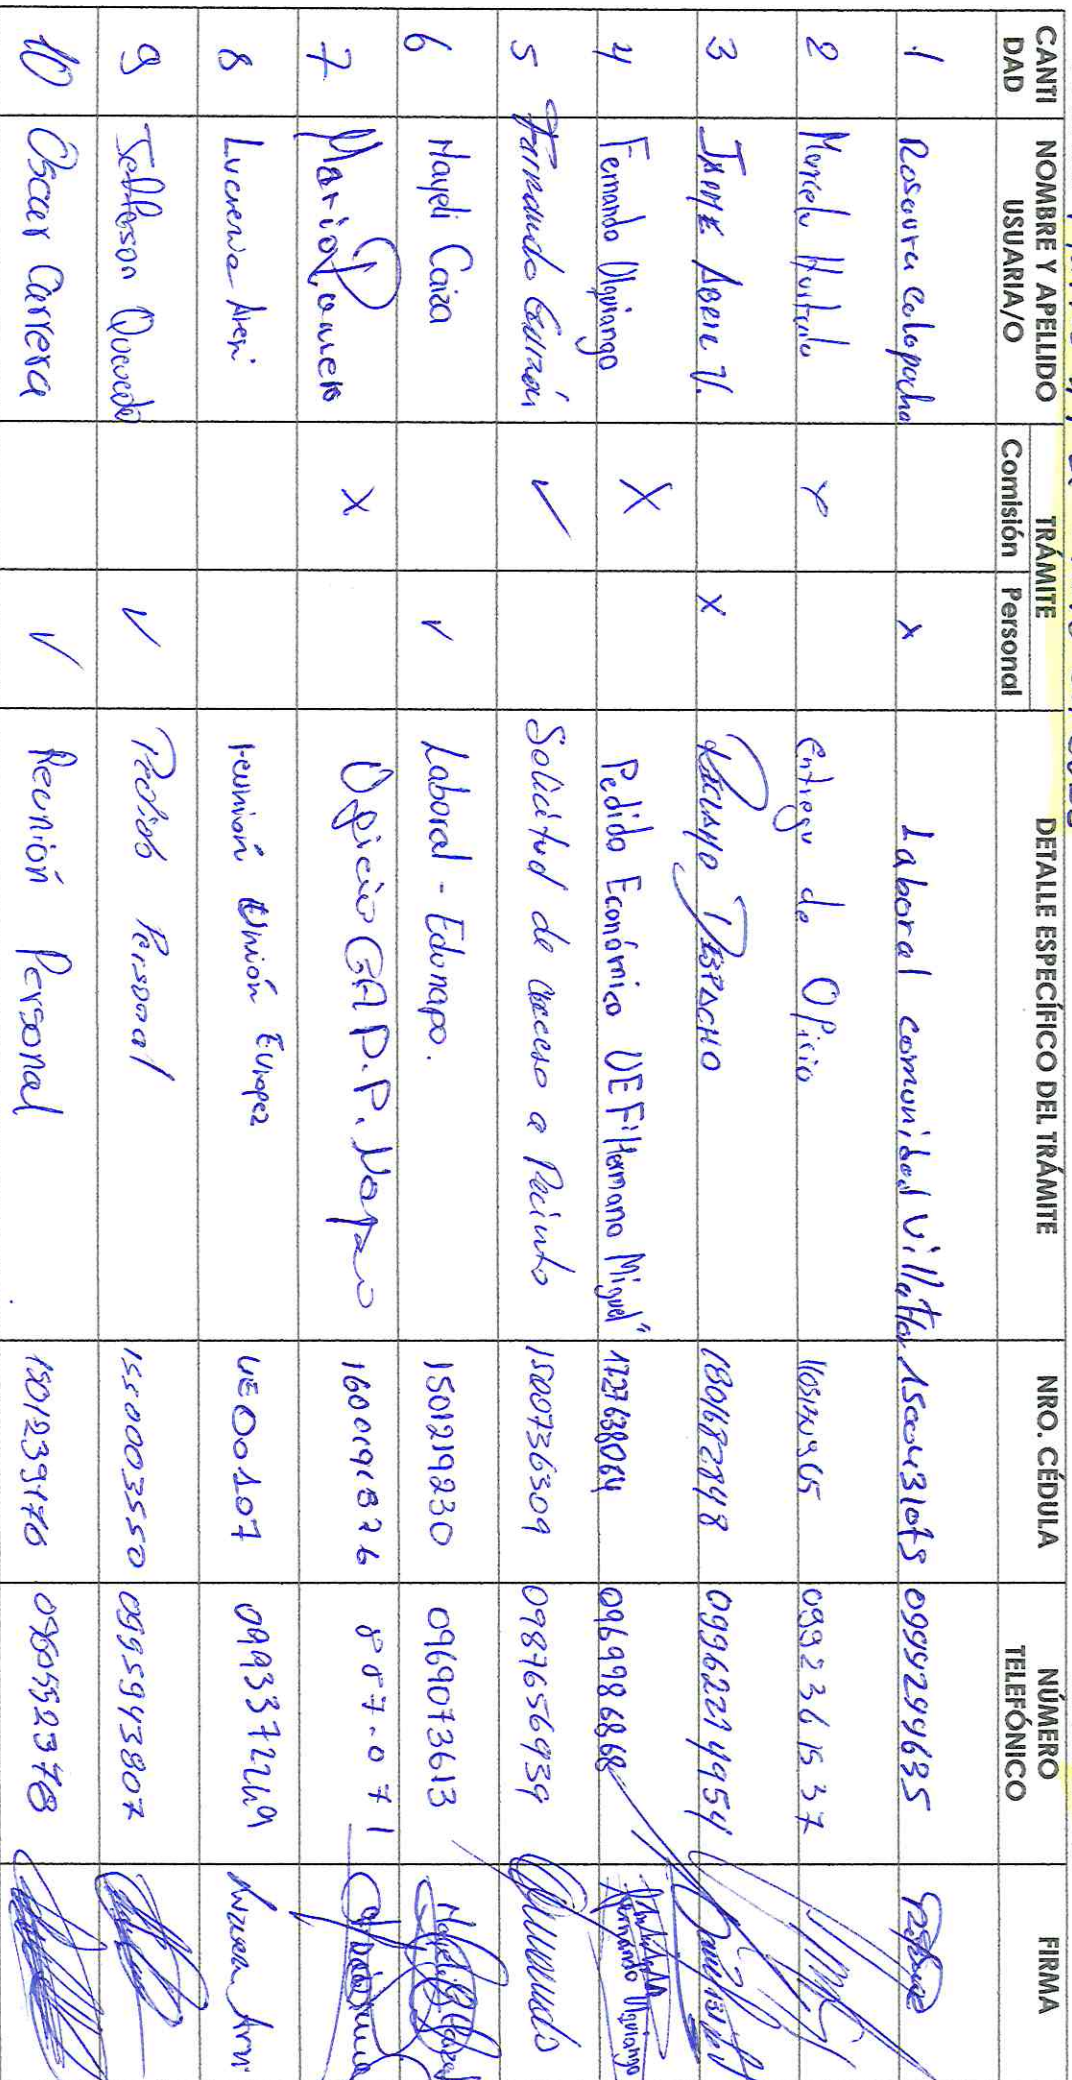 CANTI DAD | NOMBRE Y APELLIDO USUARIA/O | TRÁMITE Comisión | Personal | DETALLE ESPECÍFICO DEL TRÁMITE | NRO. CÉDULA | NÚMERO TELEFÓNICO | FIRMA
1 | Rosaura | | x | Laboral comunidad | | 0999299635
2 | Marcela Hurtado | x | | Entrega de Oficio | | 0992361537
3 | JAIME ABRIL V. | | X | RECLAMO DESPACHO | 1801682848 |
4 | Fernando Ulquiango | X | | Pedido Económico UEF "Hermano Miguel" | 1727638064 | 0969986868 | Fernando Ulquiango
5 | Fernando | ✓ | | Solicitud de acceso a Recinto | 1500736309 | 0987656939
6 | Mayeli Caiza | | ✓ | Laboral - Edunapo. | 1501219230 | 0969073613
7 | Mario Romero | X | | Oficio GAD.P. Napo | | 887-071
8 | Lucrecia | | | reunión Unión Europea | UE00107 | 0993372219
9 | Jefferson Quevedo | | ✓ | Pedido Personal | 1550003550 | 0995943807
10 | Oscar Carrera | | ✓ | Reunión Personal | | 0960552378